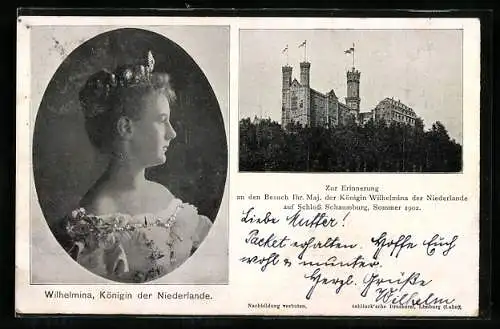 Wilhelmina, Königin der Niederlande.
Zur Erinnerung
an den Besuch Ihr. Maj. der Königin Wilhelmina der Niederlande
auf Schloß Schaumburg, Sommer 1902.
Liebe Mutter!
Packet erhalten. Hoffe Euch
wohl u. munter.
Herzl. Grüße
Wilhelm
Nachbildung verboten.
Druckerei, Limburg (Lahn).